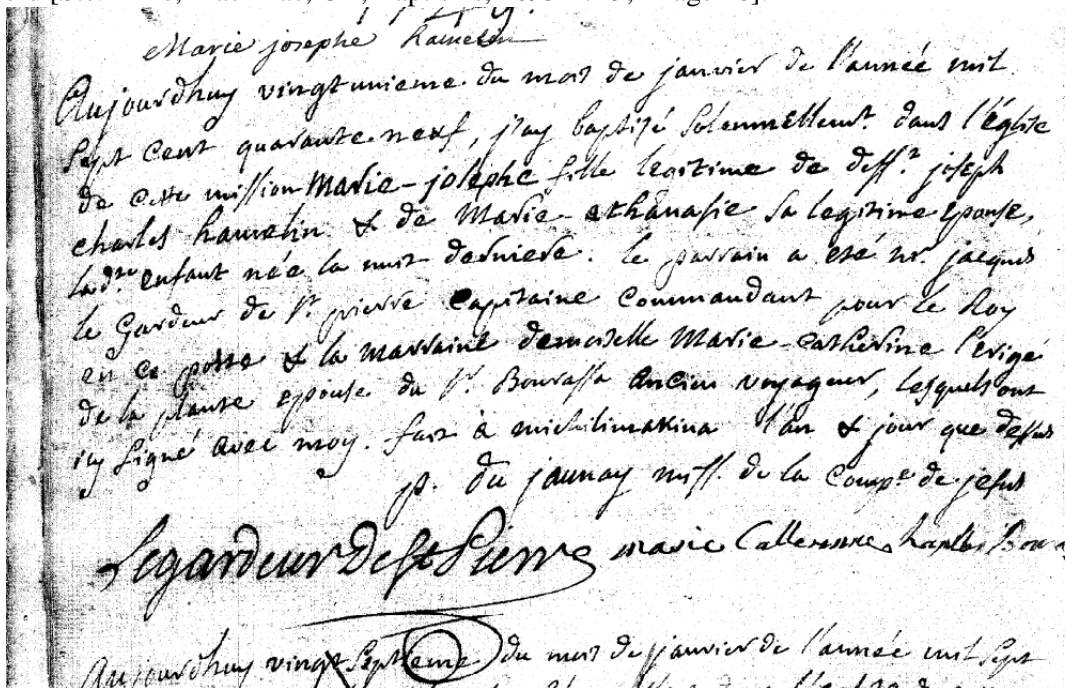 Marie josephe hamelin
Aujourdhuy vingtunieme du mois de janvier de l'année mil
sept cent quarante neuf, j'ay baptisé solemnellemt. dans l'église
de cette mission Marie-josephe fille legitime de deff.t joseph
charles hamelin & de Marie-athânasie sa legitime epouse,
lad.te enfant née la nuit derniere. le parrain a eté mr. jacques
le Gardeur de st. pierre Capitaine Commandant pour le Roy
en ce poste & la marraine demoiselle Marie-Catherine l'erigé
de la plante epouse du sr. Bourassa ancien voyageur, lesquels ont
icy signé avec moy. fait à michilimakina l'an & jour que dessus
p. du jaunay miss. de la Comp.e de jesus
Legardeur De St Pierre marie Catherinne
Aujourdhuy vingt septieme du mois de janvier de l'année mil sept